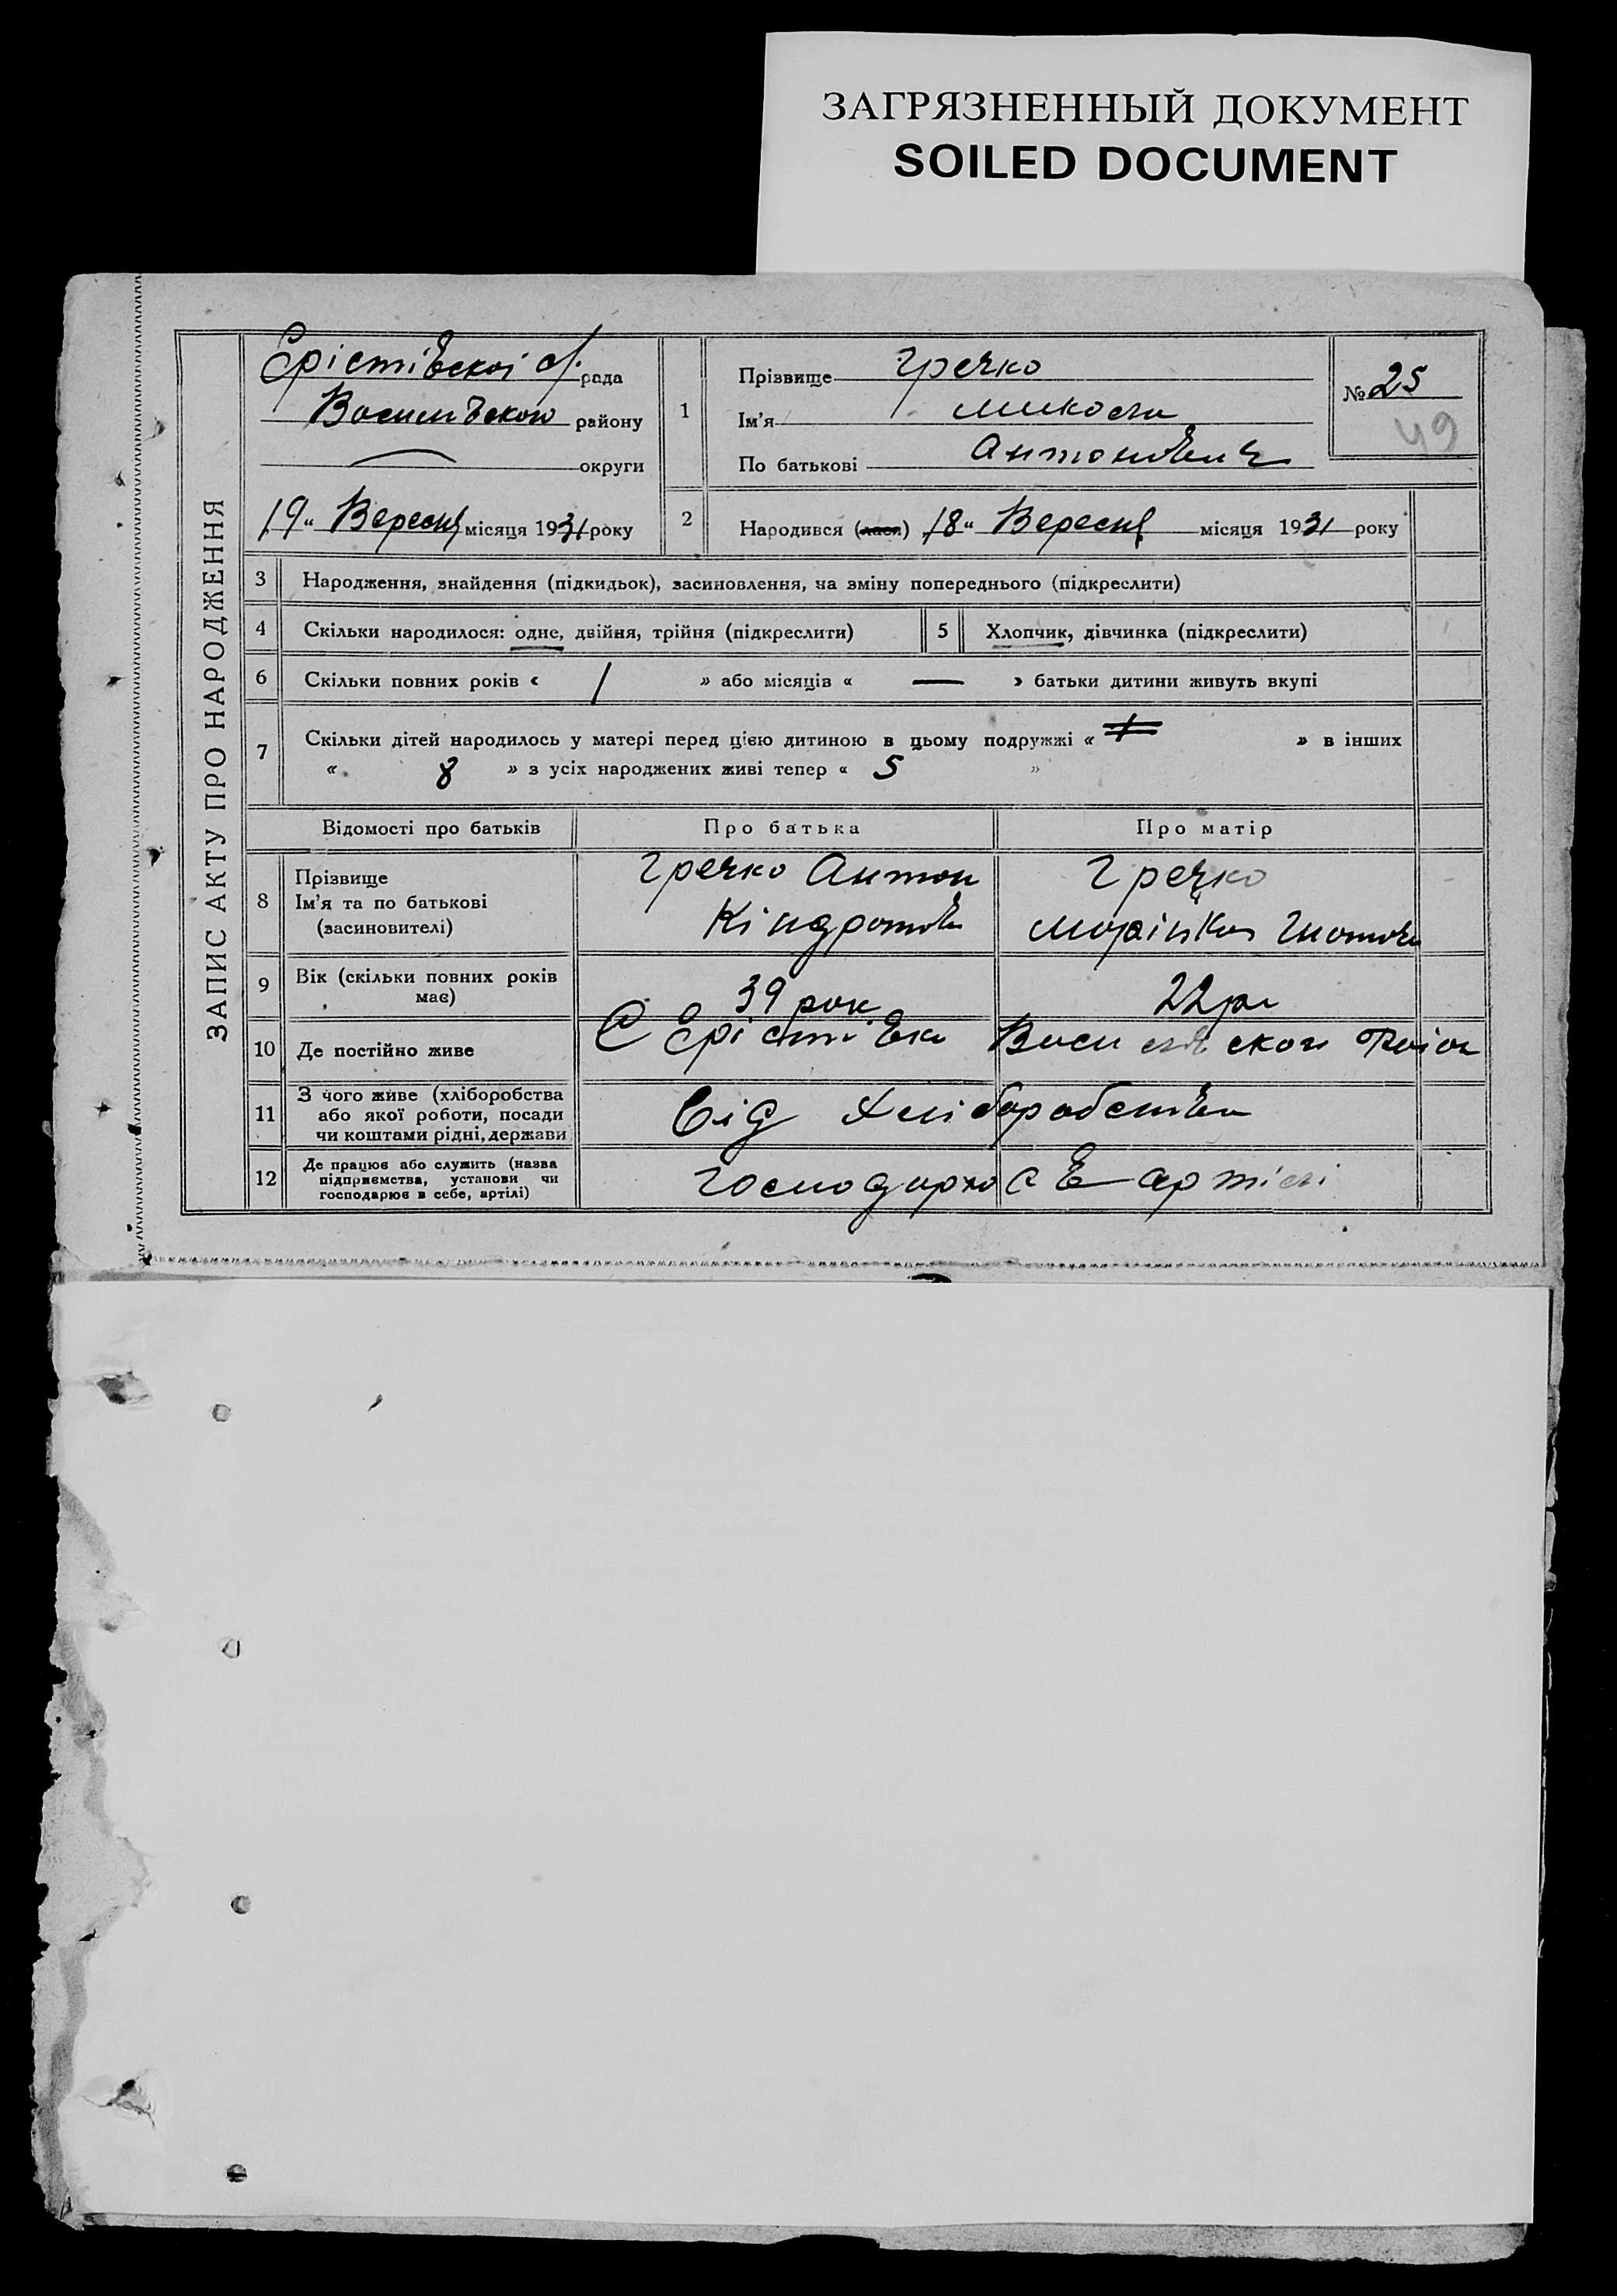 ЗАГРЯЗНЕННЫЙ ДОКУМЕНТ
SOILED DOCUMENT
ЗАПИС АКТУ ПРО НАРОДЖЕННЯ
Єрістівскої с/. рада
району
округи
19 „ Вересня місяця 1931 року
1
Прізвище Гречко
Ім'я Микола
По батькові Антонович
№ 25
49
2 Народився (лася) 18 „ Вересня місяця 1931 року
3 Народження, знайдення (підкидьок), засиновлення, на зміну попереднього (підкреслити)
4 Скільки народилося: одне, двійня, трійня (підкреслити)
5 Хлопчик, дівчинка (підкреслити)
6 Скільки повних років « 1 » або місяців « — » батьки дитини живуть вкупі
7 Скільки дітей народилось у матері перед цією дитиною в цьому подружжі « » в інших
« 8 » з усіх народжених живі тепер « 5 »
Відомості про батьків Про батька Про матір
8 Прізвище
Ім'я та по батькові
(засиновителі)
Гречко Антон
Кіндратов
Гречко
9 Вік (скільки повних років
має)
39 рок
22
10 Де постійно живе
С Єрістівка
11 З чого живе (хліборобства
або якої роботи, посади
чи коштами рідні, держави
Від Хліборобства
12 Де працює або служить (назва
підприємства, установи чи
господарює в себе, артілі)
в артілі